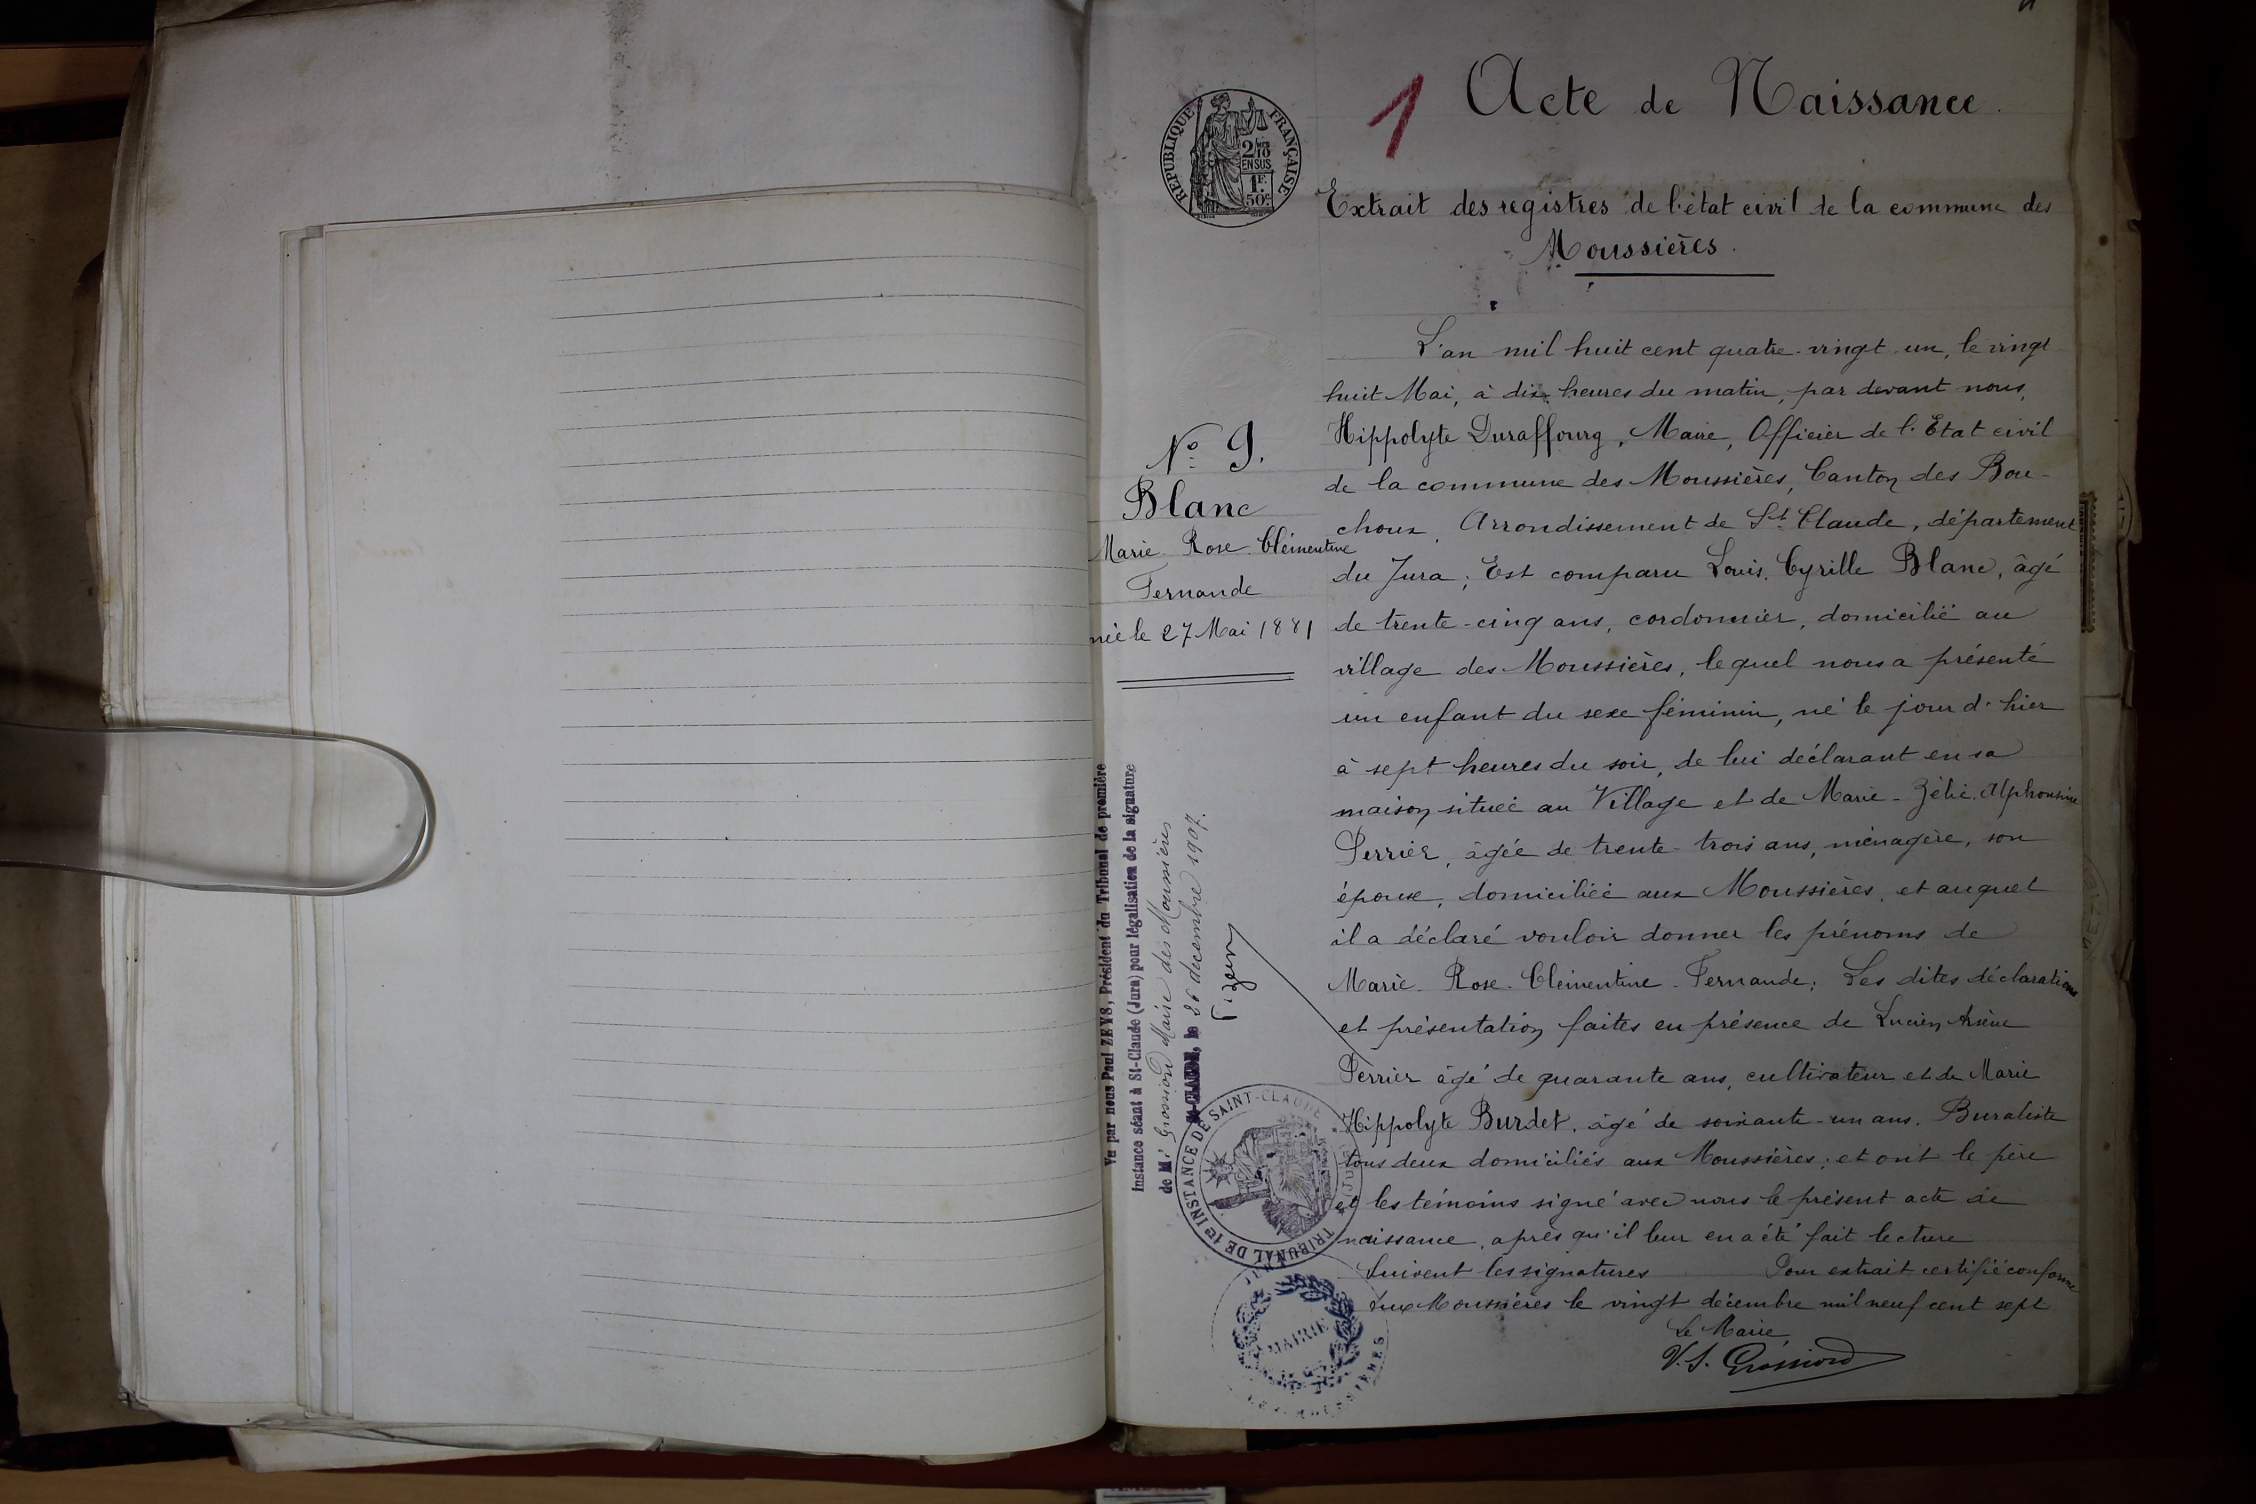 1
Acte de Naissance.
RÉPUBLIQUE FRANÇAISE
2/10
EN SUS
1F.
50c
Extrait des registres de l'état civil de la commune des
Moussières.
N° 9.
Blanc
Marie Rose Clémentine
Fernande
née le 27 Mai 1881
L'an mil huit cent quatre-vingt-un, le vingt
huit Mai, à dix heures du matin, par devant nous,
Hippolyte Duraffourg, Maire, Officier de l'Etat civil
de la commune des Moussières, Canton des Bou-
choux, Arrondissement de St Claude, département
du Jura; Est comparu Louis Cyrille Blanc, âgé
de trente-cinq ans, cordonnier, domicilié au
village des Moussières, lequel nous a présenté
un enfant du sexe féminin, né le jour d'hier
à sept heures du soir, de lui déclarant en sa
maison située au Village et de Marie-Zélie Alphonsine
Perrier, âgée de trente-trois ans, ménagère, son
épouse, domiciliée aux Moussières, et auquel
il a déclaré vouloir donner les prénoms de
Marie-Rose-Clémentine-Fernande; Les dites déclarations
et présentation faites en présence de Lucien Arsène
Perrier âgé de quarante ans, cultivateur et de Marie
Hippolyte Burdet, âgé de soixante-un ans, Buraliste
tous deux domiciliés aux Moussières; et ont le père
et les témoins signé avec nous le présent acte de
naissance, après qu'il leur en a été fait lecture
Suivent les signatures Pour extrait certifié conforme
Aux Moussières le vingt décembre mil neuf cent sept
Le Maire,
V. S. Grossiord
Vu par nous Paul ZEYS, Président du Tribunal de première
Instance séant à St-Claude (Jura) pour légalisation de la signature
de Mr Grossiord Maire des Moussières
St-CLAUDE, le 26 décembre 1907.
TRIBUNAL DE 1re INSTANCE DE SAINT-CLAUDE
JURA
MAIRIE